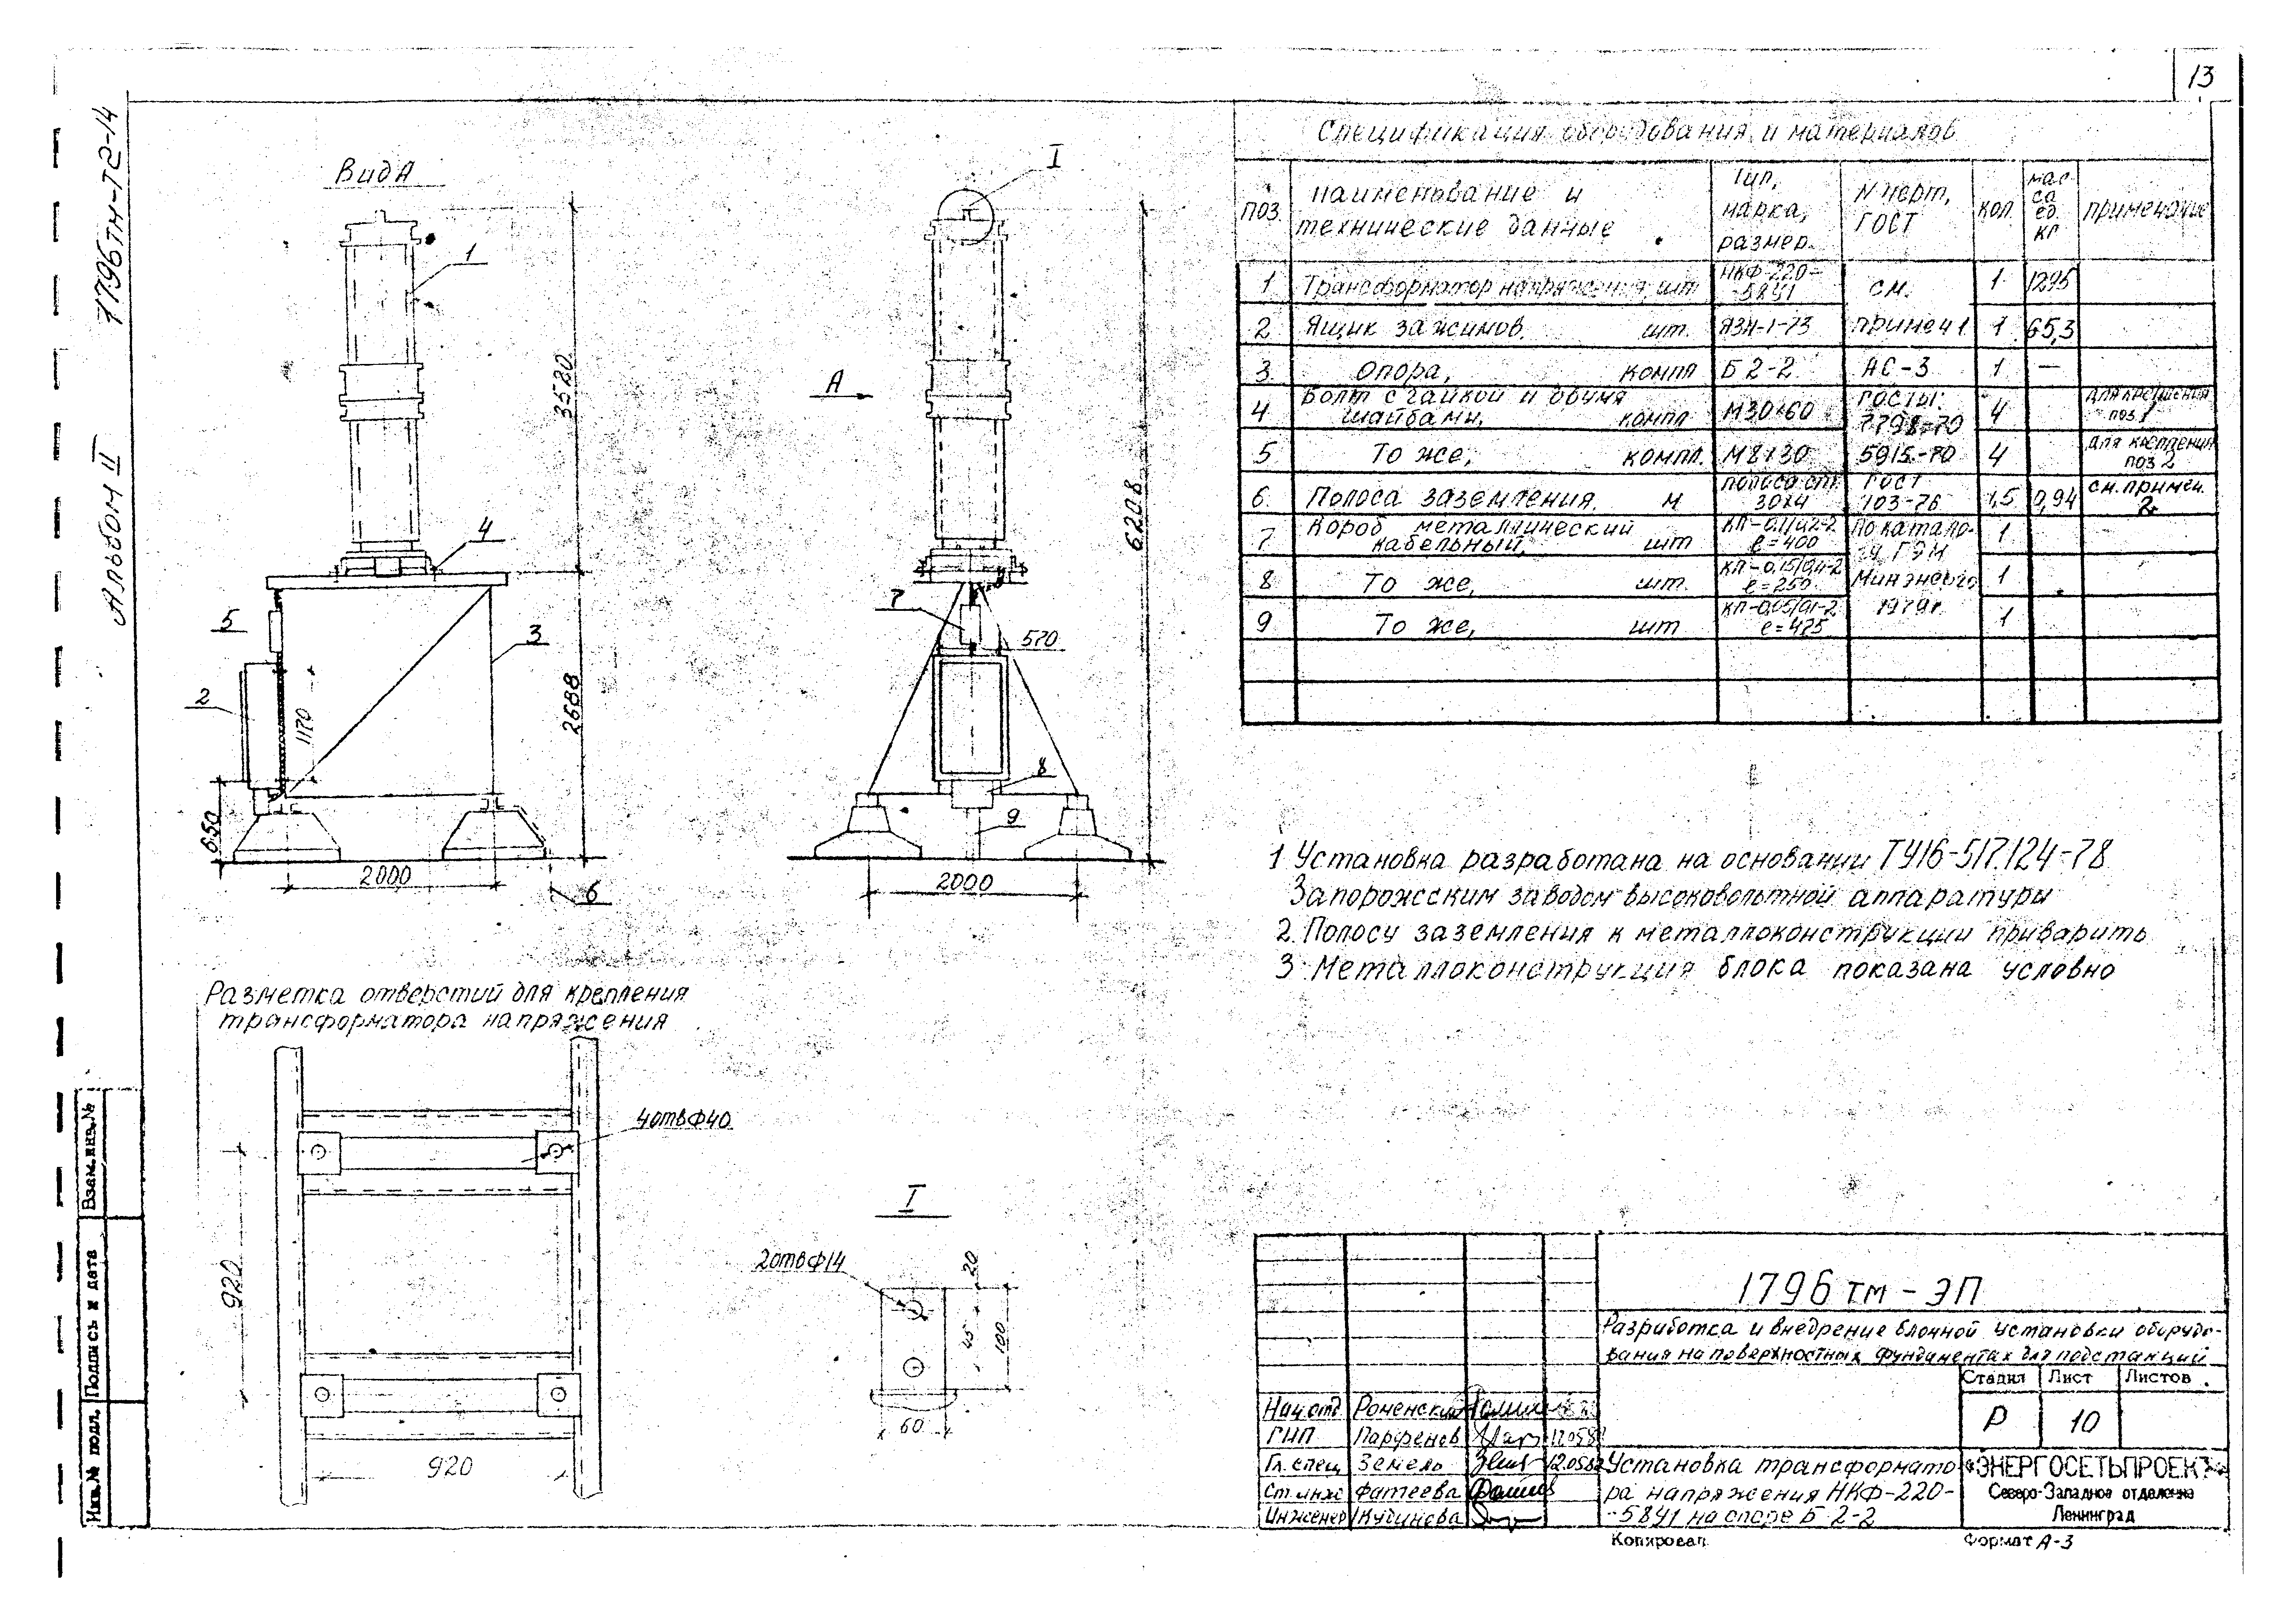 13
1796тм-Т2-14
Альбом II
Вид А
I
1
А
3520
6208
4
5
3
7
570
2
1170
2688
8
650
9
2000
6
2000
Спецификация оборудования и материалов
поз.
наименование и технические данные
Тип, марка, размер.
N черт, ГОСТ
кол.
масса ед. кг
примечание
1 Трансформатор напряжения, шт НКФ-220-5841 см. 1 1295
2 Ящик зажимов. шт. ЯЗН-1-73 примеч 1 1 65,3
3 Опора, компл Б2-2 АС-3 1 —
4 Болт с гайкой и двумя шайбами, компл М30×60 ГОСТы: 7798-70 4 для крепления поз 1
5 То же, компл. М8×30 5915-70 4 для крепления поз 2
6. Полоса заземления. м полоса ст. 30×4 ГОСТ 103-76 1,5 0,94 см. примеч. 2
7 Короб металлический кабельный, шт е=400 По каталогу ГЭМ 1
8 То же, шт. КП-0,15/0,4-2 е=250 Минэнерго 1
9 То же, шт КП-0,05/0,1-2 е=425 1979г. 1
1 Установка разработана на основании ТУ16-517.124-78
Запорожсским заводом высоковольтной аппаратуры
2. Полосу заземления к металлоконструкции приварить
3 Металлоконструкция блока показана условно
Разметка отверстий для крепления
трансформатора напряжения
4отвФ40
920
920
I
2отвФ14
20
45
100
60
Взам.инв.№
Подпись и дата
Инв.№ подл.
1796 тм - ЭП
Разработка и внедрение блочной установки оборудо-
вания на поверхностных фундаментах для подстанций
Стадия Лист Листов
Р 10
Нач.отд Роменский
ГИП Парфенов
Гл.спец Земель 12.05.82
Ст.инж Фатеева
Инженер Кудинова
Установка трансформато
ра напряжения НКФ-220-
-5841 на опоре Б 2-2
«ЭНЕРГОСЕТЬПРОЕКТ»
Северо-Западное отделение
Ленинград
Копировал
Формат А-3